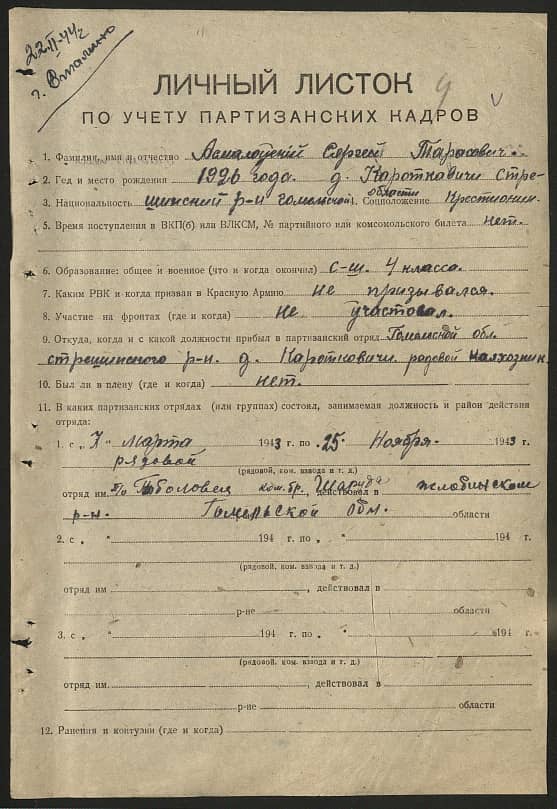 22.II-44г
г.
9
V
ЛИЧНЫЙ ЛИСТОК
ПО УЧЕТУ ПАРТИЗАНСКИХ КАДРОВ
1. Фамилия, имя и отчество Сергей Тарасович.
2. Год и место рождения 1926 года. д. Короткавичи Стре-
3. Национальность шинский р-н гомельской области 4. Соцположение Крестианин
5. Время поступления в ВКП(б) или ВЛКСМ, № партийного или комсомольского билета нет.
6. Образование: общее и военное (что и когда окончил) с-ш. 4 класса.
7. Каким РВК и когда призван в Красную Армию не призывался.
8. Участие на фронтах (где и когда) Не участовал.
9. Откуда, когда и с какой должности прибыл в партизанский отряд Гомельской обл.
стрешинского р-н. д. Каротковичи. родовой калхозник.
10. Был ли в плену (где и когда) нет.
11. В каких партизанских отрядах (или группах) состоял, занимаемая должность и район действия
отряда:
1. с „ Марта 1943 г. по „25" Ноября 1943 г.
рядовой
(рядовой, ком. взвода и т. д.)
отряд им. п/о Боловец ком. бр. Шаруда, действовал в жлобинском
р-н. Гомельской Обл. области
2. с „ " 194 г. по „ " 194 г.
(рядовой, ком. взвода и т. д.)
отряд им. , действовал в
р-не области
3. с „ " 194 г. по „ " 194 г.
(рядовой, ком. взвода и т. д.)
отряд им. , действовал в
р-не области
12. Ранения и контузии (где и когда)